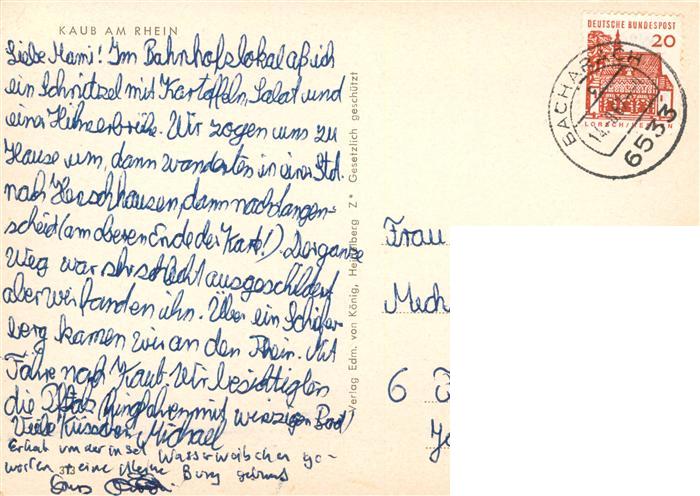 KAUB AM RHEIN
Liebe Mami! Im Bahnhofslokal aß ich
ein Schnitzel mit Kartoffeln, Salat und
einer Hühnerbrühe. Wir zogen uns zu
Hause um, dann wanderten in einer Std.
nach Henschhausen, dann nach Langen=
scheid (am oberen Ende der Karte!). Der ganze
Weg war sehr schlecht ausgeschildert
aber wir fanden ihn. Über ein Schiefer-
berg kamen wir an den Rhein. Mit
Fähre nach Kaub. Wir besichtigten
die Pfalz (hingfahren mit winzigen Boot)
Viele Küsschen Michael
Er hat von der Insel Wasser
worfen + eine kleine Burg gebaut
313
Verlag Edm. von König, Heidelberg Z* Gesetzlich geschützt
DEUTSCHE BUNDESPOST
20
LORSCH/HESSEN
BACHARACH
6533
Frau
Mech
6